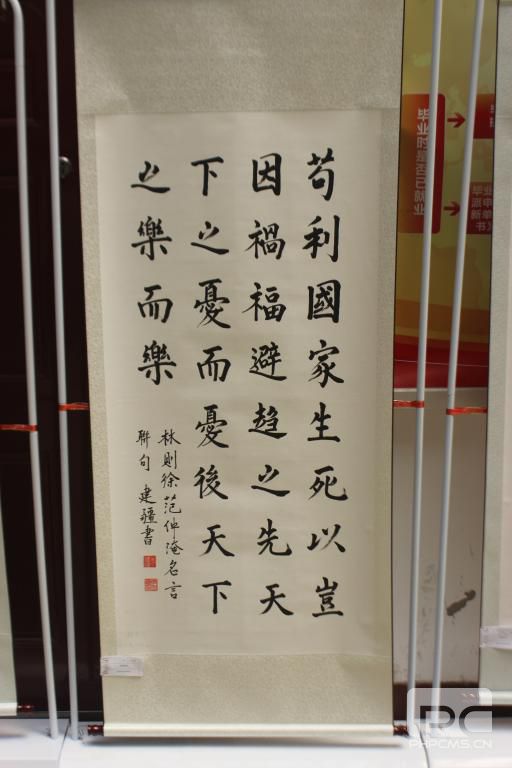 苟利國家生死以豈
因禍福避趋之先天
下之憂而憂後天下
之樂而樂
林則徐范仲淹名言
聯句 建疆書
PHPCMS.CN